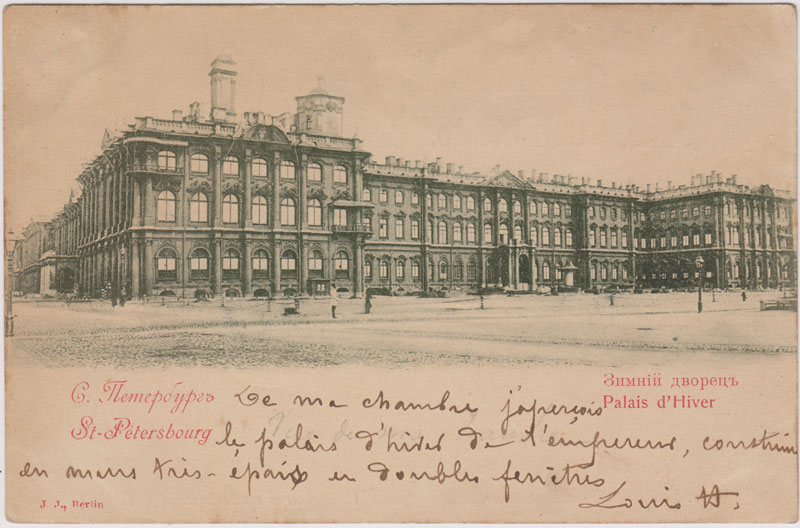 С. Петербургъ
St-Pétersbourg
Зимній дворецъ
Palais d'Hiver
De ma chambre j'aperçois
le palais d'hiver de l'empereur, construit
en murs très-épais en doubles fenêtres
Louis H.
J. J., Berlin